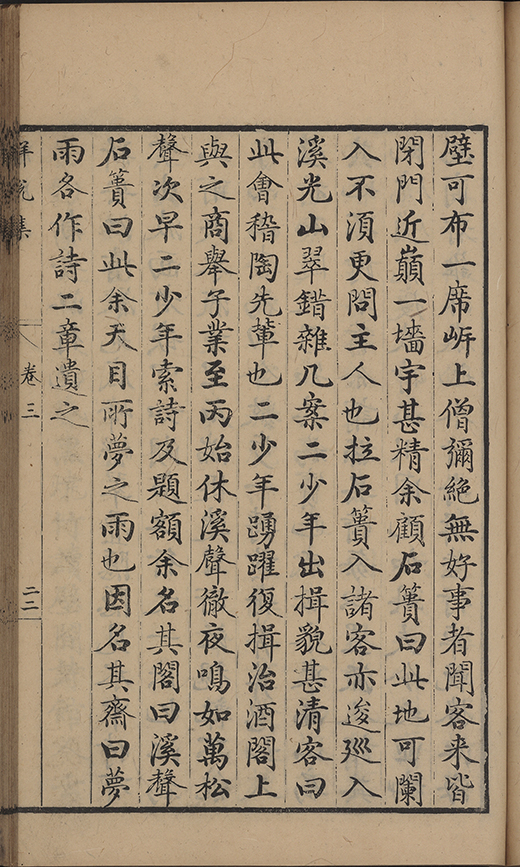 壁可布一席㟁上僧彌絶無好事者聞客来皆
閉門近巔一墻宇甚精余顧石簣曰此地可闌
入不須更問主人也拉石簣入諸客亦逡廵入
溪光山翠錯雜几案二少年出揖貌甚清客曰
此會稽陶先軰也二少年踴躍復揖治酒閣上
與之商舉子業至丙始休溪聲徹夜鳴如萬松
聲次早二少年索詩及題額余名其閣曰溪聲
石簣曰此余天目所夢之雨也因名其齋曰夢
雨各作詩二章遺之
解脫集
卷三
二二